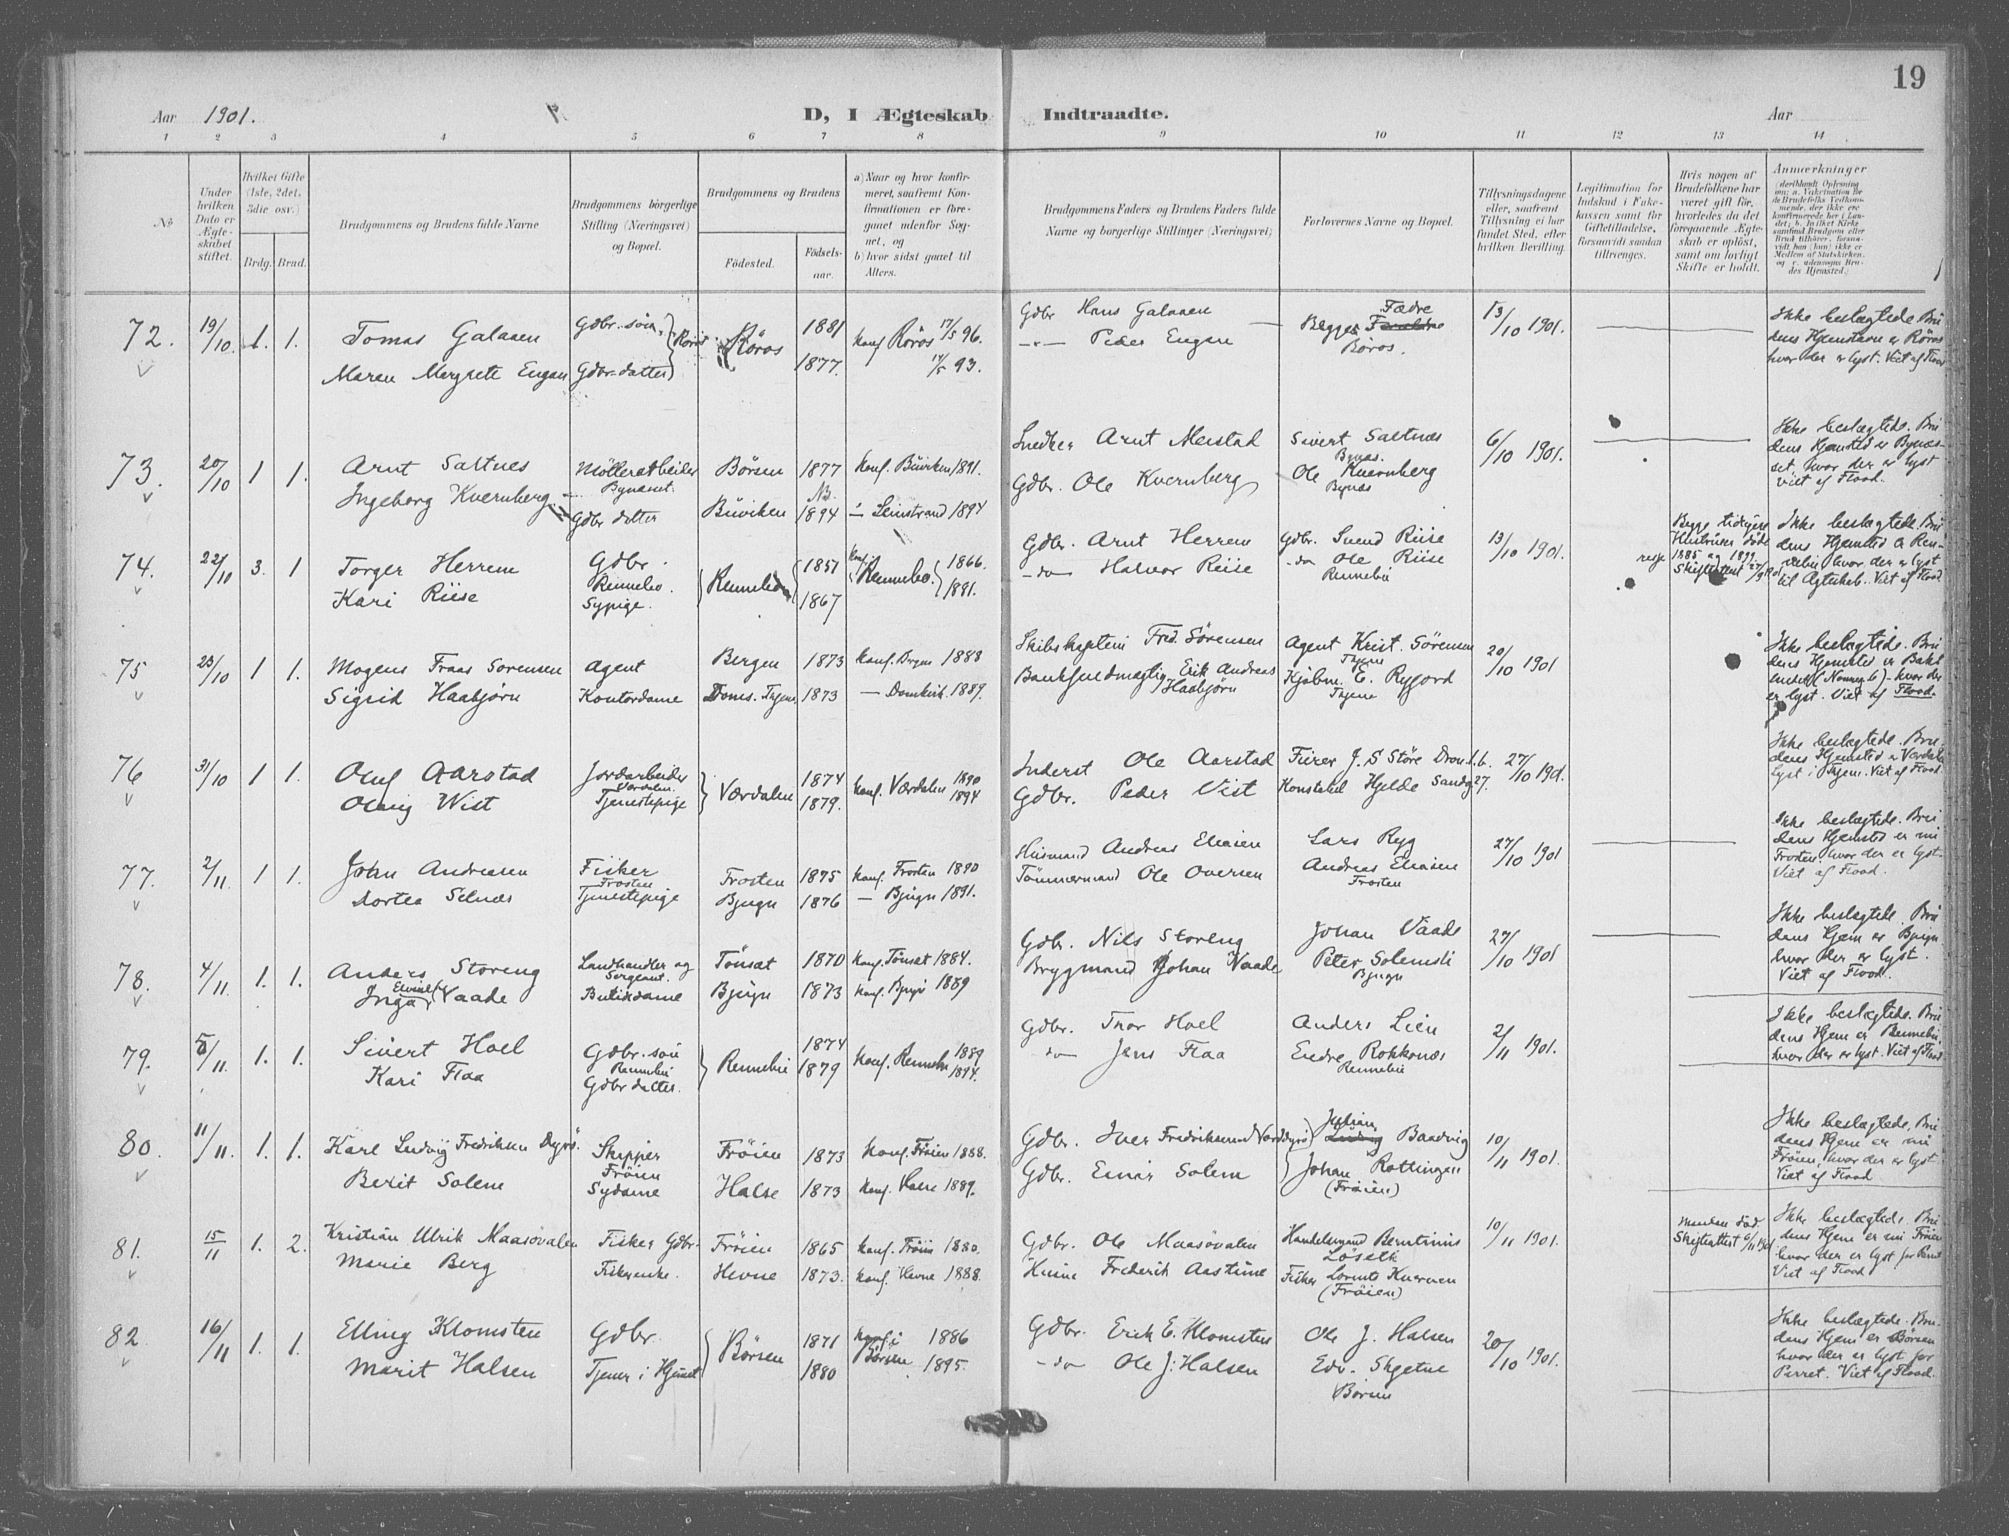 19
Aar 1901. D, I Ægteskab Indtraadte. Aar
1 2 3 4 5 6 7 8 9 10 11 12 13 14
No
Under hvilken Dato er Ægteskabet stiftet.
Hvilket Gifte (1ste, 2det, 3die osv.)
Brdg. Brud.
Brudgommens og Brudens fulde Navne
Brudgommens börgerlige Stilling (Næringsvei) og Bopæl.
Brudgommens og Brudens
Födested.
Födselsaar.
a) Naar og hvor konfirmeret, saafremt Konfirmationen er foregaaet udenfor Sognet, og
b) hvor sidst gaaet til Alters.
Brudgommens Faders og Brudens Faders fulde Navne og borgerlige Stillinger (Næringsvei)
Forlovernes Navne og Bopæl.
Tillysningsdagene eller, saafremt Tillysning ei har fundet Sted, efter hvilken Bevilling.
Legitimation for Indskud i Enkekassen samt for Giftetilladelse, forsaavidt saadan tiltrænges.
Hvis nogen af Brudefolkene har været gift för, hvorledes da det foregaaende Ægteskab er oplöst, samt om lovligt Skifte er holdt.
Anmærkninger
72. 19/10 1. 1. Tomas Galaaen Gdbr. sön Röros 1881 konf Röros 17/5 96. Gdbr Hans Galaaen Begges Fædre 13/10 1901. Ikke beslægtede. Brudens Hjemstavn er Röros
Maren Margrete Engan Gdbr. datter 1877. 93. Peder Engan Röros. hvor der er lyst. Viet af Flood
73. 20/10 1 1. Arnt Saltnes Möllerarbeider Börsen 1877 konf. Büviken 1891. Snedker Arnt Meistad Sivert Saltnæs 6/10 1901. Ikke beslægtede. Brudens Hjemsted er Bynæsset, hvor der er lyst
Ingeborg Kvernberg Bynæsset Gdbr datter Büviken 1894 Leinstrand 1894 Gdbr. Ole Kvernberg Ole Kvernberg Bynæs viet af Flood.
74. 22/10 3. 1 Torger Herrem Gdbr. Rennebo. Rennebo 1851 konf. Rennebo. 1866. Gdbr. Arnt Herrem Gdbr. Svend Riise 13/10 1901. Begge tidligere Hustruer döde 1885 og 1899 Ikke beslægtede. Brudens Hjemsted er Rennebu hvor der er lyst
Kari Riise Sypige. 1867 1881. do Halvor Riise do Ole Riise Rennebu Skifteattest til Ægteskab. Viet af Flood
75 23/10 1 1. Mogens Fraas Sorensen Agent Bergen 1873 konf. Brgen 1888 Skibskaptein Fred. Sörensen Agent Krist. Sörensen Thjem 20/10 1901 Ikke beslægtede. Brudens Hjemsted er
Sigrid Haabjörn Kontordame Doms. Thjem. 1873 — Domkirk. 1889. Bankfuldmægtig Erik Andreas Haabjörn Kjöbm. E. Rygord Thjem hvor der er lyst. Viet af Flood.
76 31/10 1 1. Oluf Aarstad Jordarbeider Værdalen. Værdalen 1874 konf. Værdalen 1890 Inderst Ole Aarstad Furer J. S Störe 27/10 1901. Ikke beslægtede. Brudens Hjemsted er Værdalen
Olmig Wist Tjenestepige 1879. 1894 Gdbr. Peder Vist Konstabel Hjelde Sandg 27. lyst i Thjem. Viet af Flood
77. 2/11. 1 1. John Andreasen Fisker Frosten Frosten 1875 konf. Frosten 1890 Husmand Andreas Eliasen Lars Ryg 27/10 1901 Ikke beslægtede. Brudens Hjemsted er nu
Dortea Selnæs Tjenestepige Bjugn 1876 — Bjugn 1891. Tömmermand Ole Oversen Andreas Eliasen Frosten Frosten hvor der er lyst. Viet af Flood.
78. 4/11. 1. 1. Anders Storeng Landhandler og Sergeant. Tönsæt 1870 konf. Tönsæt 1884. Gdbr. Nils Storeng Johan Vaade 27/10 1901 Ikke beslægtede. Brudens Hjem er Bjugn
Inga Vaade Butikdame Bjugn 1873 konf. Bjugn 1889 Brygmand Johan Vaade Peter Solemsli Bjugn hvor der er lyst. Viet af Flood.
79. 5/11. 1. 1. Sivert Hoel Gdbr. sön Rennebu Rennebu 1874 konf. Rennebu 1889 Gdbr. Tror Hoel Anders Lien 2/11 1901. Ikke beslægtede. Brudens Hjem er Rennebu,
Kari Flaa Gdbr datter. 1879 1894. do Jens Flaa Endre Rokkonæs Rennebu hvor der er lyst. Viet af Flood
80. 11/11. 1. 1. Karl Ludvig Fredriksen Dyrö. Skipper Fröien Fröien 1873 konf. Fröien 1888. Gdbr. Iver Fredriksen Julian Baadvig 10/11 1901. Ikke beslægtede, Brudens Hjem er nu
Berit Solem Sydame Halse 1873 konf. Halse 1889. Gdbr. Einar Solem Johan Rottingen (Fröien) Fröien, hvor der er lyst. Viet af Flood
81. 15/11 1. 2. Kristian Ulrik Maasövalen Fisker Gdbr. Fröien 1865 konf. Fröien 1880. Gdbr. Ole Maasövalen Handelsmand Berntinus 10/11 1901. Manden död. Skifteattest Ikke beslægtede. Brudens Hjem er nu Fröien
Marie Berg Fiskerenke. Hevne 1873. konf. Hevne 1888. Frederik Aastüne Fisker Lorents Kverven (Fröien) hvor der er lyst for Parret Viet af Flood
82. 16/11 1. 1. Elling Klomsten Gdbr. Börsen 1871 konf. i Börsen 1886 Gdbr. Erik E. Klomsten Ole J. Halsen 20/10 1901. Ikke beslægtede. Brudens Hjem er Börsen
Marit Halsen Tjener i Hjemet 1880 1895. do Ole J. Halsen Edv. Skjetne Börsen hvor der er lyst for Parret. Viet af Flood.